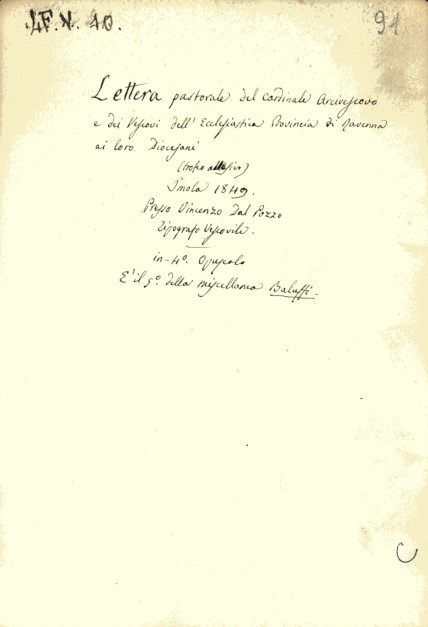 LF.N. 40.
91
Lettera pastorale del cardinale Arcivescovo
e dei Vescovi dell' Ecclesiastica Provincia di Ravenna
ai loro Diocesani
(trofeo allusivo)
Imola 1849.
Presso Vincenzo Dal Pozzo
Tipografo Vescovile.
in-4º. Opuscolo
E' il 5º. della miscellanea Baluffi.